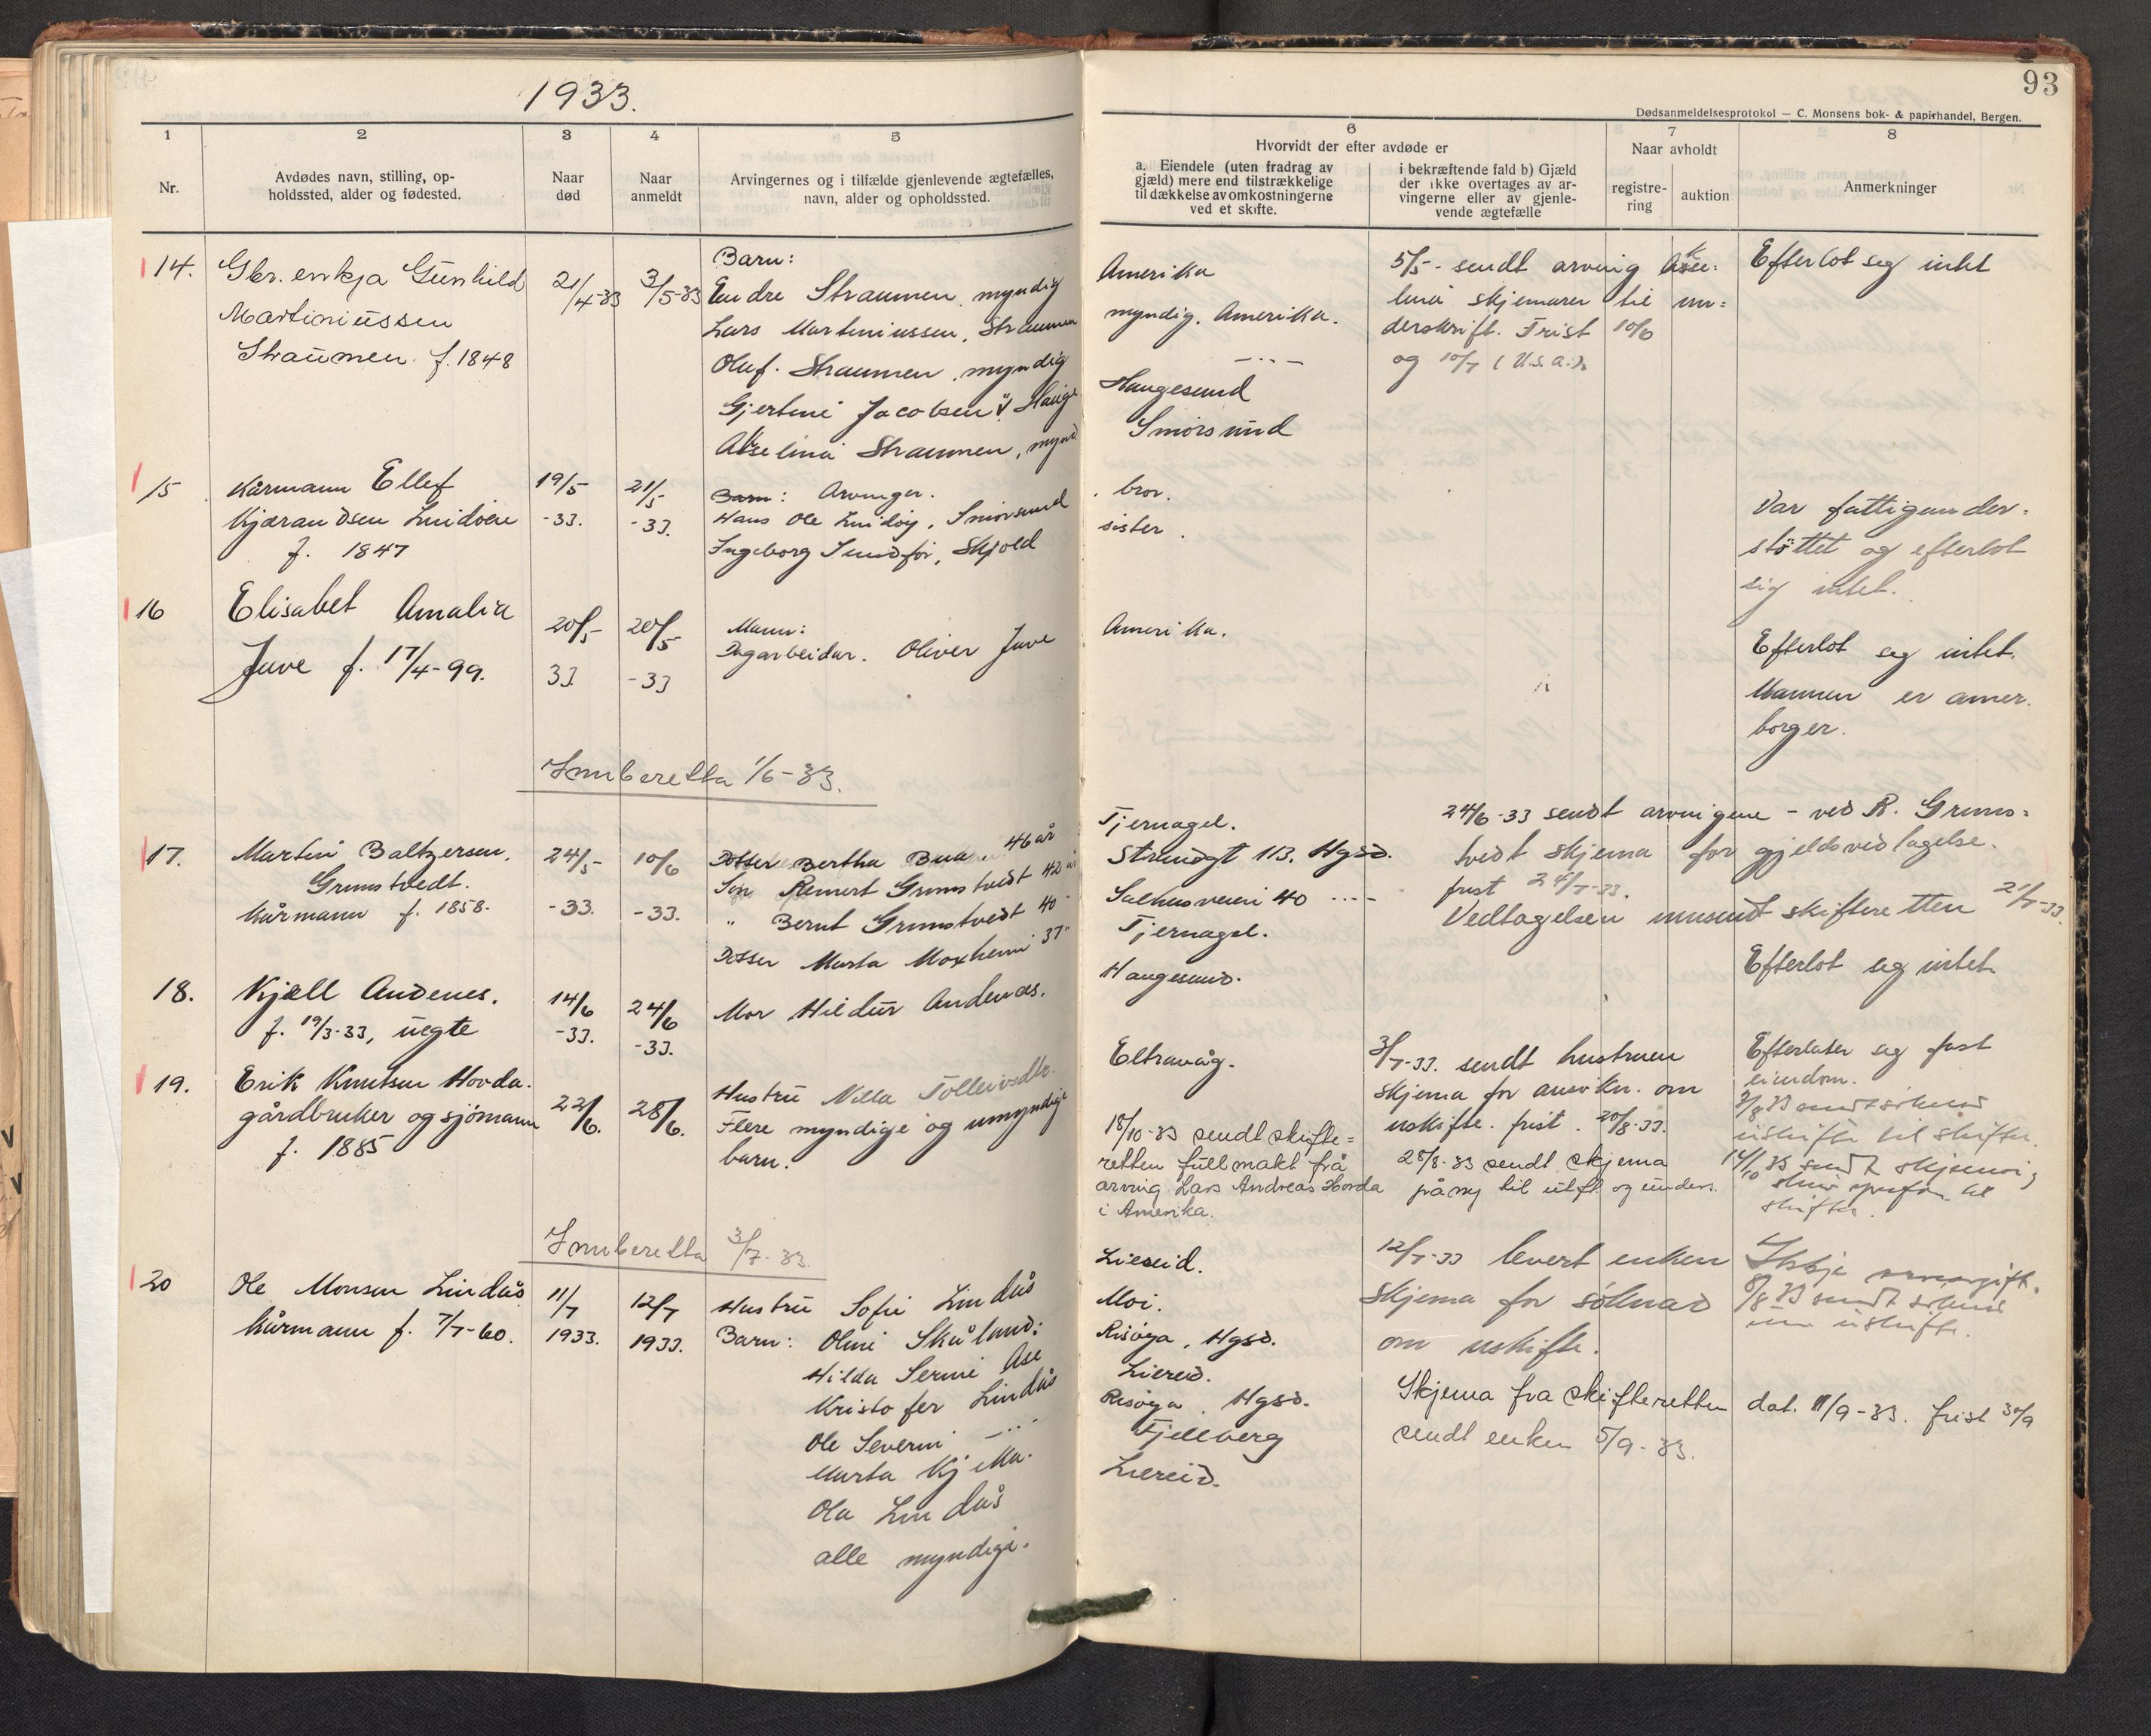 1933.
93
Dødsanmeldelsesprotokol — C. Monsens bok- & papirhandel, Bergen.
1
2
3
4
5
6
7
8
Nr.
Avdødes navn, stilling, op-
holdssted, alder og fødested.
Naar
død
Naar
anmeldt
Arvingernes og i tilfælde gjenlevende ægtefælles,
navn, alder og opholdssted.
Hvorvidt der efter avdøde er
a. Eiendele (uten fradrag av
gjæld) mere end tilstrækkelige
til dækkelse av omkostningerne
ved et skifte.
i bekræftende fald b) Gjæld
der ikke overtages av ar-
vingerne eller av gjenle-
vende ægtefælle
Naar avholdt
registre-
ring
auktion
Anmerkninger
14.
Gbr. enkja Gunhild
Martiniussen
Straumen f. 1848
21/4-33
3/5-33
Barn:
Endre Straumen, myndig
Lars Martiniussen, Straumen
Oluf. Straumen, myndig
Gjertine Jacobsen
Straumen, mynd
Amerika
myndig. Amerika.
— ·· —
Haugesund
Smørsund
5/5 - sendt arving
lina skjemaer til un=
derskrift. Frist 10/6
og 10/7 (U.s.a.).
Efterlot seg intet
15
Kårmann Ellef
Kjærandsen Lindøen
f. 1847
19/5
-33.
21/5
-33.
Barn: Arvinger.
Hans Ole Lindøy, Smørsund
Ingeborg Sundfør, Skjold
bror.
sister.
Var fattigunder=
støttet og efterlot
sig intet.
16
Elisabet Amalia
Juve f. 17/4-99.
20/5
33
20/5
-33
Mann:
Dagarbeidar. Oliver Juve
Amerika.
Efterlot seg intet.
Mannen er amer.
borger.
Innberetta 1/6-33.
17.
Martin Baltzersen.
Grimstvedt.
Kårmann f. 1858.
24/5
-33.
10/6
-33.
Dotter Bertha Bua 46 år
Son Reinert Grimstvedt 42 år
" Bernt Grimstvedt 40 "
Dotter Marta Moxheim 37 "
Tjernagel.
Strandgt 113. Hgsd.
Salhusveien 40 ·· —
Tjernagel.
24/6-33 sendt arvingene - ved R. Grims=
tvedt skjema for gjeldsvedtagelse.
frist 24/7-33.
Vedtagelsen innsendt skifteretten 21/7-33.
18.
Kjell Andenes.
f. 19/3-33, uegte
14/6
-33.
24/6
-33.
Mor Hildur Andenæs.
Haugesund.
Efterlot seg intet
19.
Erik Knutsen Hovda.
gårdbruker og sjømann
f. 1885
22/6.
28/6.
Hustru Nilla Tolleivsdtr.
Flere myndige og umyndige
barn.
Eltravåg.
18/10-33 sendt skifte=
retten fullmakt frå
arving Lars Andreas Hovda
i Amerika.
3/7-33. sendt hustruen
skjema for ansøkn. om
uskifte. frist. 20/8-33.
28/8-33 sendt skjema
på ny til utft. og unders.
Efterlater seg fast
eiendom.
Innberetta 3/7-33.
20
Ole Monsen Lindås
Kårmann f. 7/7-60.
11/7
1933.
12/7
1933.
Hustru Sofie Lindås
Barn: Oline Skåland:
Hilda Serine Åse
Kristofer Lindås
Ole Severin — ·· —
Marta Kjetta.
Ola Lindås
alle myndige.
Liereid.
Moi.
Risøya, Hgsd.
Liereid.
Risøya, Hgsd.
Fjellberg
Liereid.
12/7-33 levert enken
skjema for søknad
om uskifte.
Skjema fra skifteretten dat. 1/9-33. frist 30/9
sendt enken 5/9-33.